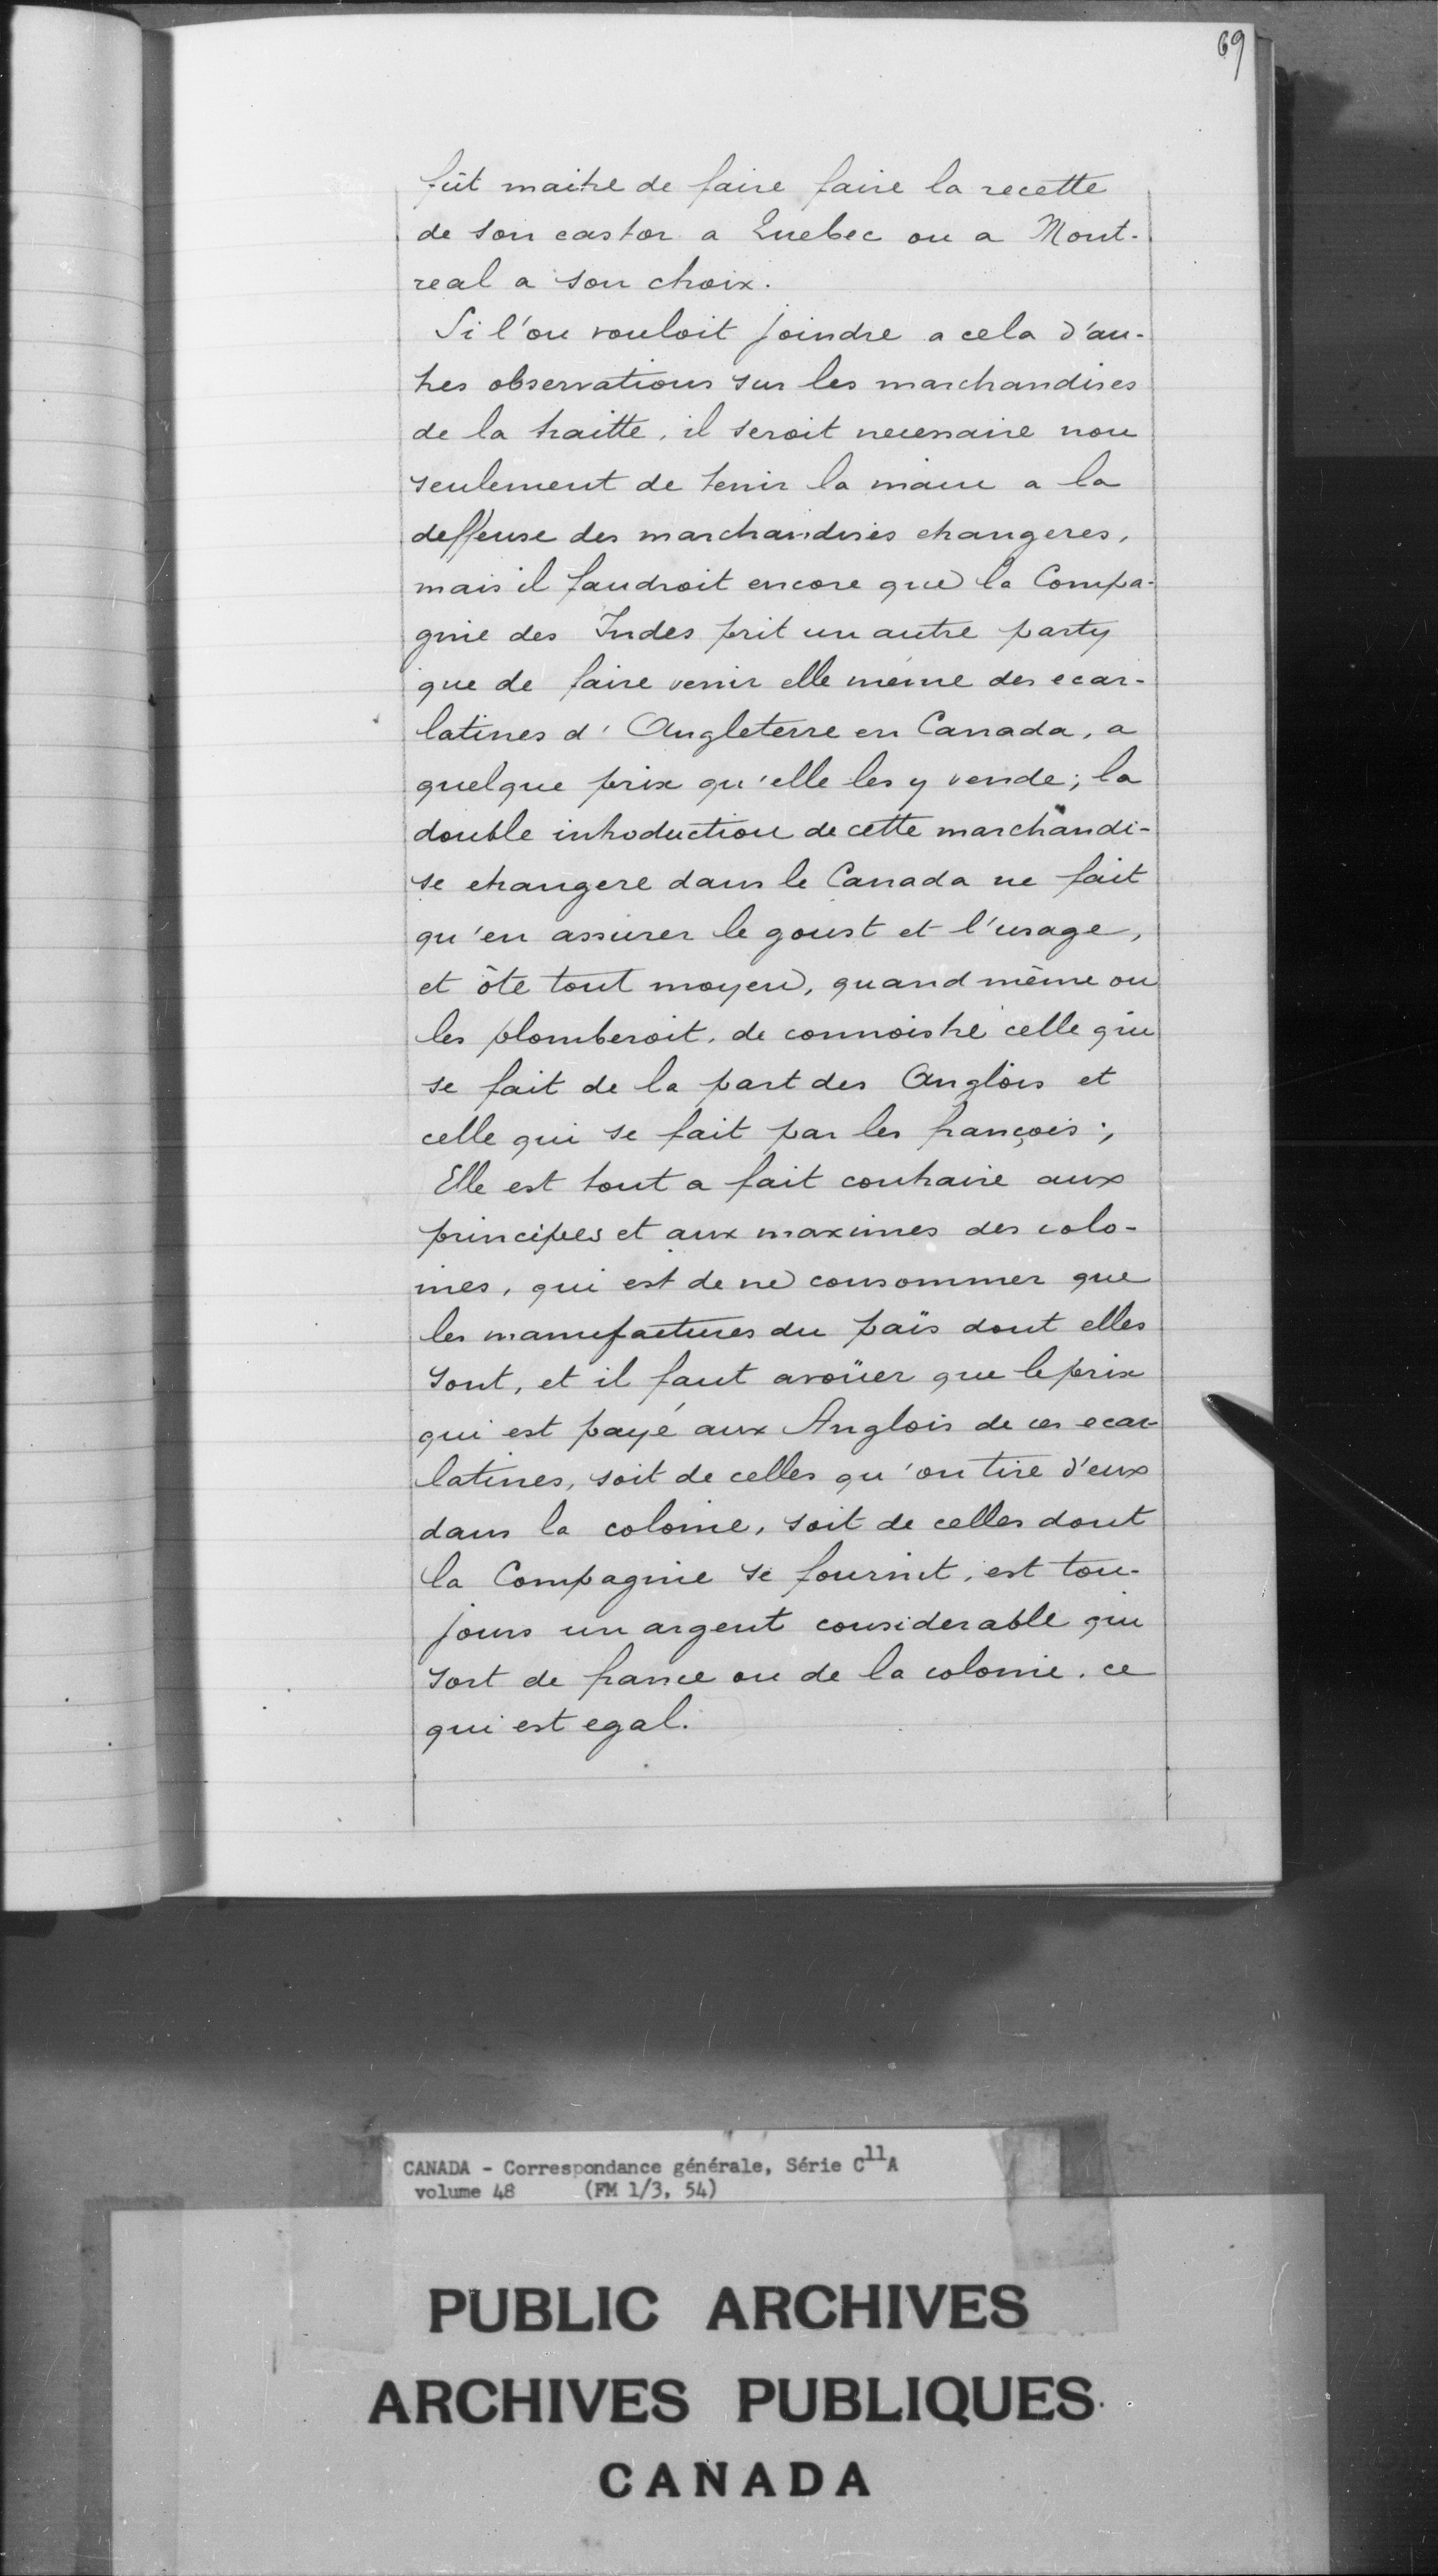 69
fût maitre de faire faire la recette
de son castor a Quebec ou a Mont-
real a son choix.
Si l'on vouloit joindre a cela d'au-
tres observations sur les marchandises
de la traitte, il seroit necessaire non
seulement de tenir la main a la
deffense des marchandises etrangeres,
mais il faudroit encore que la Compa-
gnie des Indes prit un autre party
que de faire venir elle même des ecar-
latines d'Angleterre en Canada, a
quelque prix qu'elle les y vende; la
double introduction de cette marchandi-
se etrangere dans le Canada ne fait
qu'en assurer le goust et l'usage,
et ôte tout moyen, quand même on
les plomberoit, de connoistre celle qui
se fait de la part des Anglois et
celle qui se fait par les françois;
Elle est tout a fait contraire aux
principes et aux maximes des colo-
nies, qui est de ne consommer que
les manufactures du païs dont elles
sont, et il faut avoüer que le prix
qui est payé aux Anglois de ces ecar-
latines, soit de celles qu'on tire d'eux
dans la colonie, soit de celles dont
la Compagnie se fournit, est tou-
jours un argent considerable qui
sort de france ou de la colonie, ce
qui est egal.
CANADA - Correspondance générale, Série C11A
volume 48 (FM 1/3, 54)
PUBLIC ARCHIVES
ARCHIVES PUBLIQUES
CANADA